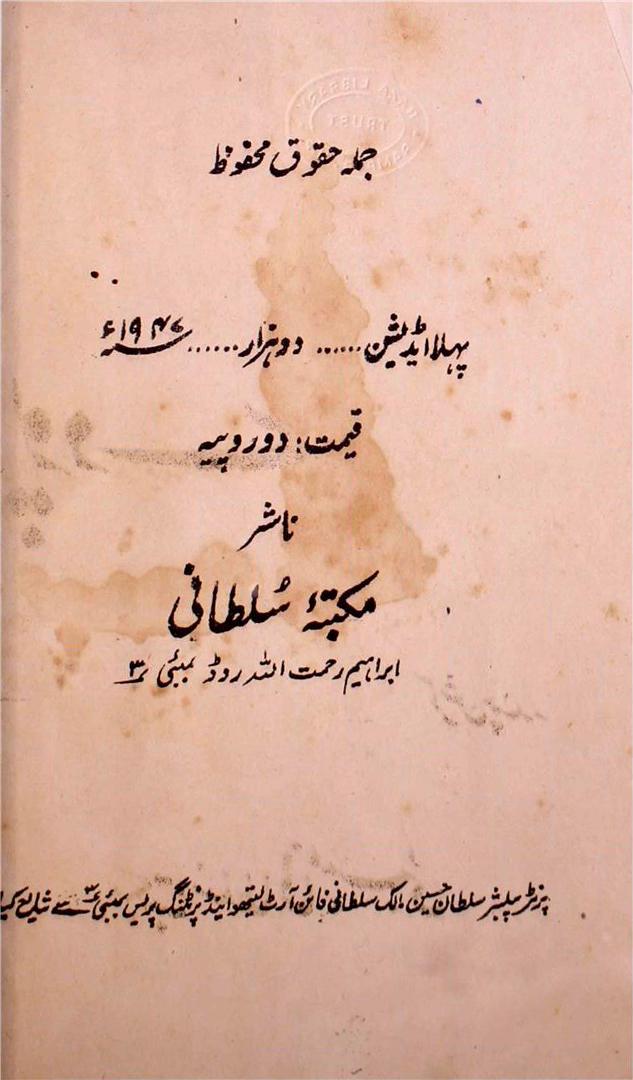 جملہ حقوق محفوظ
پہلا ایڈیشن ...... دو ہزار ...... سنہ ۱۹۴۷ء
قیمت: دو روپیہ
ناشر
مکتبۂ سُلطانی
ابراہیم رحمت اللہ روڈ بمبئی ۳
پرنٹر پبلشر سلطان حسین مالک سلطانی فائن آرٹ لیتھو اینڈ پرنٹنگ پریس بمبئی ۳ سے شایع کیا